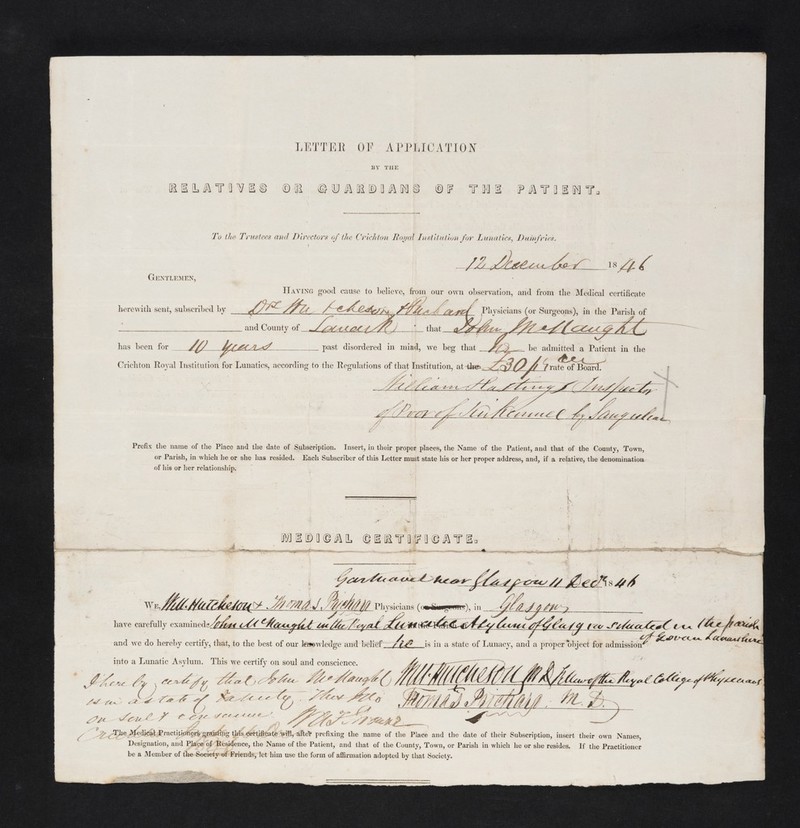 LETTER OF APPLICATION
BY THE
RELATIVES OR GUARDIANS OF THE PATIENT.
To the Trustees and Directors of the Crichton Royal Institution for Lunatics, Dumfries.
12 December 1846
GENTLEMEN,
HAVING good cause to believe, from our own observation, and from the Medical certificate
herewith sent, subscribed by Drs Hutcheson & Prichard Physicians (or Surgeons), in the Parish of
and County of Lanark that John McNaught
has been for 10 years past disordered in mind, we beg that he be admitted a Patient in the
Crichton Royal Institution for Lunatics, according to the Regulations of that Institution, at the £30 rate of Board.
William Hastings Inspector
of Poor of Kirkconnel by Sanquhar
Prefix the name of the Place and the date of Subscription. Insert, in their proper places, the Name of the Patient, and that of the County, Town,
or Parish, in which he or she has resided. Each Subscriber of this Letter must state his or her proper address, and, if a relative, the denomination
of his or her relationship.
MEDICAL CERTIFICATE.
Gartnavel near Glasgow 11 Decr 1846
WE, Wm. Hutcheson & Thomas Prichard Physicians (or Surgeons), in Glasgow
have carefully examined John McNaught in the Royal Lunatic Asylum of Glasgow situated in the parish
of Govan Lanarkshire
and we do hereby certify, that, to the best of our knowledge and belief he is in a state of Lunacy, and a proper object for admission
into a Lunatic Asylum. This we certify on soul and conscience.
Wm. Hutcheson M.D. Fellow of the Royal College of Physicians
Thomas Prichard. M.D.
I hereby certify that John McNaught
is in a state of This
on soul & conscience W.A.F. Browne
The Medical Practitioners granting this certificate will, after prefixing the name of the Place and the date of their Subscription, insert their own Names,
Designation, and Place of Residence, the Name of the Patient, and that of the County, Town, or Parish in which he or she resides. If the Practitioner
be a Member of the Society of Friends, let him use the form of affirmation adopted by that Society.